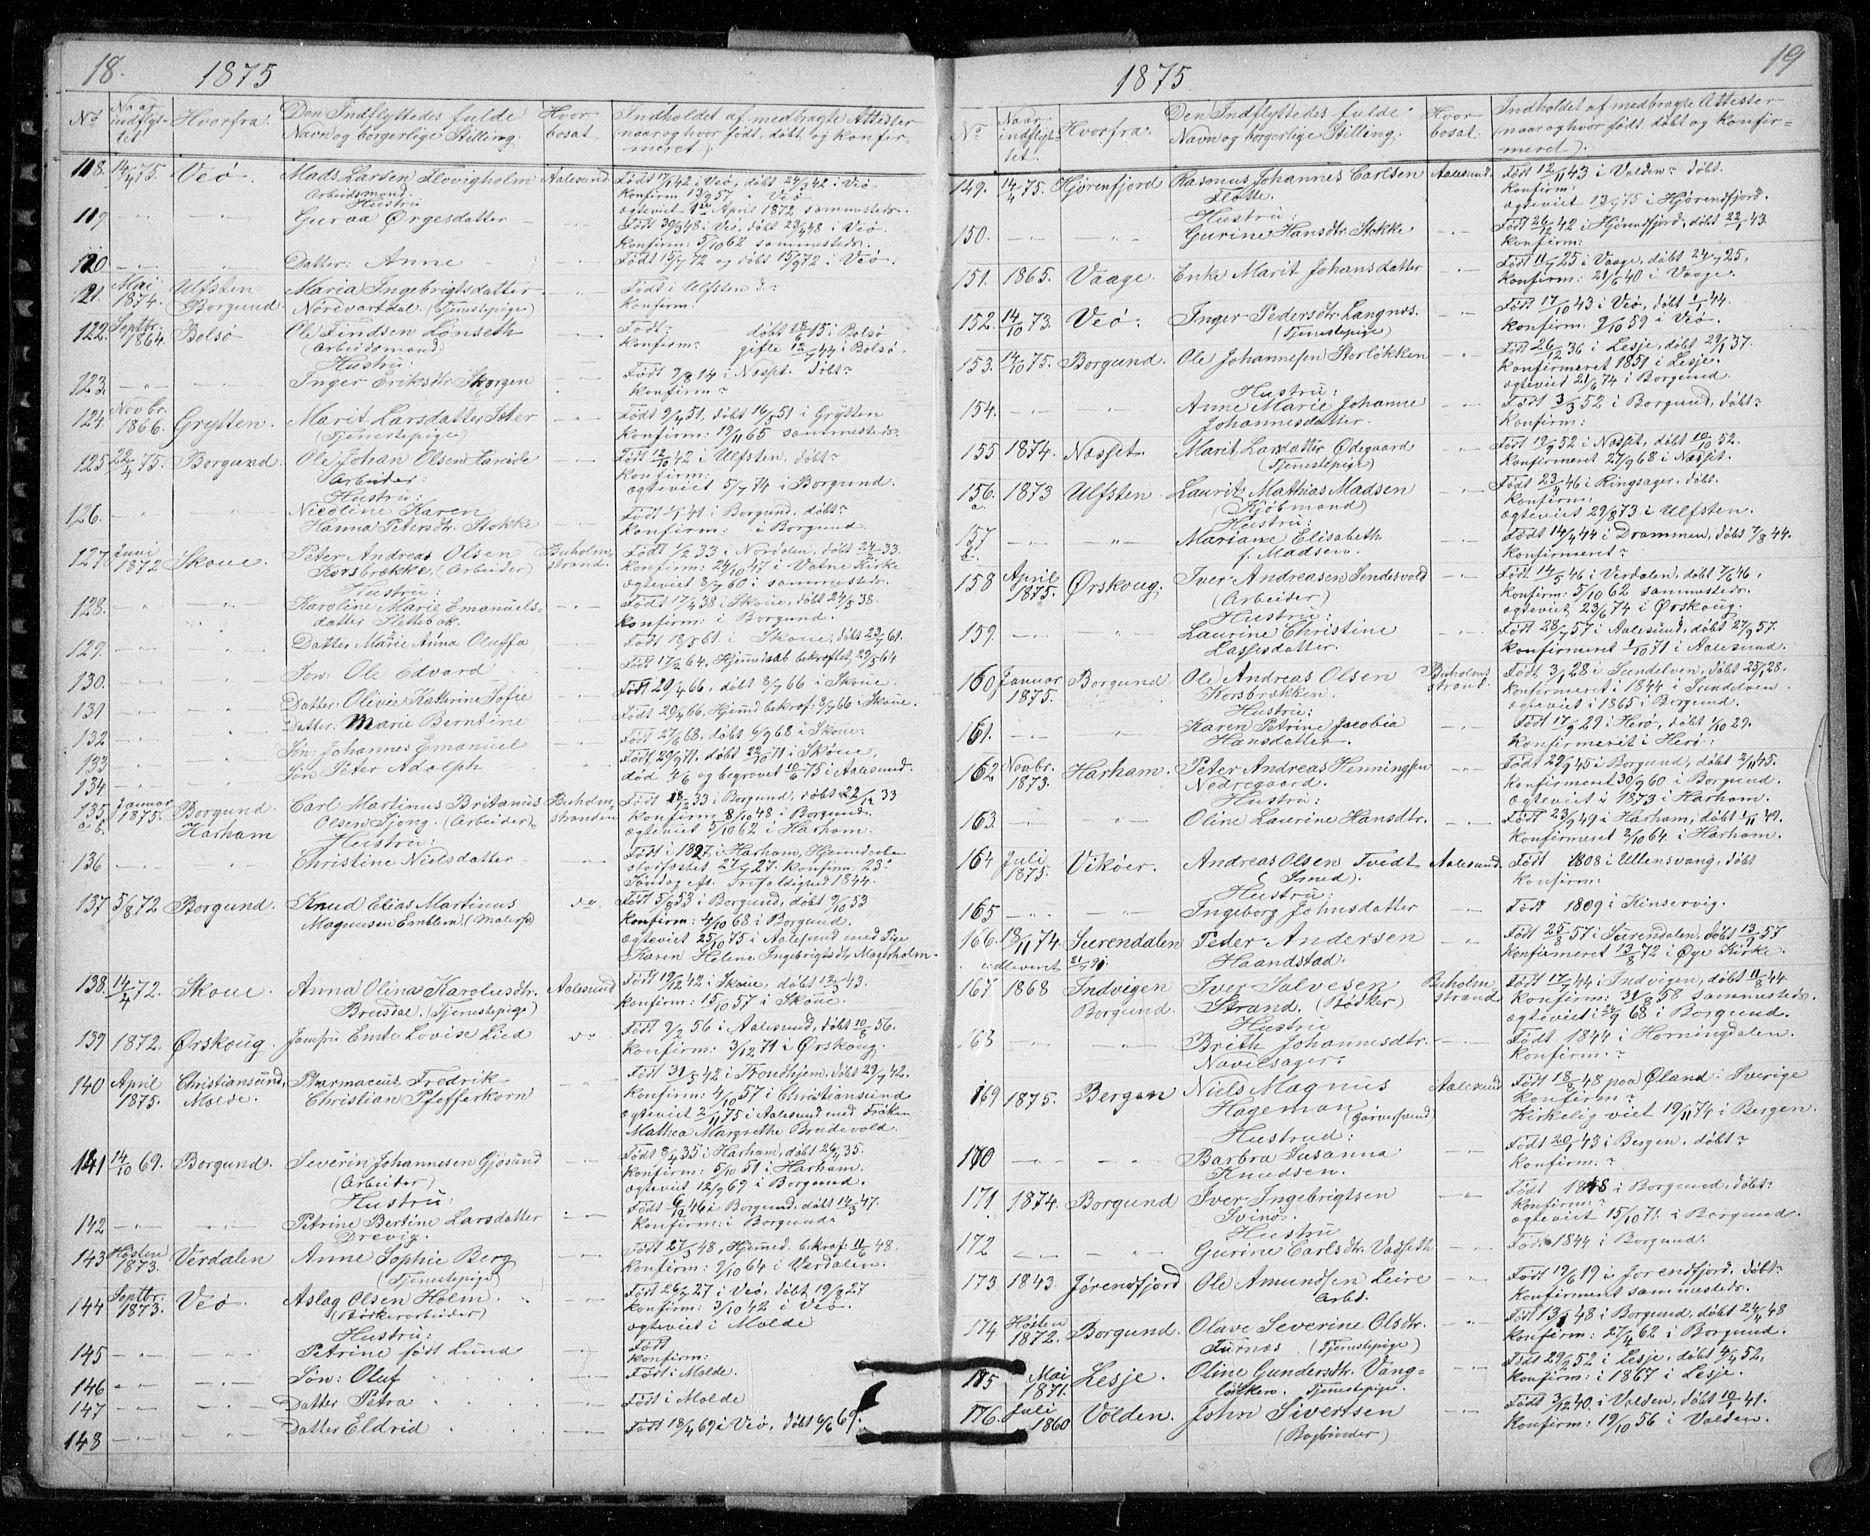 18.
1875
No Naar indflyttet Hvorfra: Den Indflyttedes fulde Navn og borgerlige Stilling: Hvor bosat. Indholdet af medbragte Attester (naar og hvor født, døbt og konfirmeret).
118. 14/4 75. Veø. Mads Larsen Aalesund Født 17/1 42 i Veø, døbt 24/3 42 i Veø
Arbeidsmand: Konfirm 13/9 57 " Veø
Hustru ægteviet April 1872 sammesteds.
119 -"- -"- Guraa Ørgesdatter -"- Født 30/3 48 i Veø, døbt 23/4 48 i Veø.
Konfirm: 5/10 62 sammesteds.
120 -"- -"- Datter: Anne -"- Født 15/7 72 og døbt 15/9 72 i Veø.
121. Mai 1874. Ulfsten Maria Ingebrigtsdatter -"- Født i Ulfsten d:
Borgund Nørevartdal (Tjenestepige) Konfirm:
122. Septbr. 1864. Bolsø Ole Lønseth -"- Født: døbt 18/6 15 i Bolsø
(Arbeidsmand: Konfirm: gifte 12/7 44 i Bolsø.
Hustru:
123. -"- -"- Inger Eriksdtr Skorgen -"- Født 9/8 14 i Nasset. døbt?
Konfirm?
124. Novbr. 1866. Grytten. Marit Larsdatter -"- Født 9/4 51, døbt 16/5 51 i Grytten
(Tjenestepige) Konfirm: 19/11 65 sammesteds.
125 22/4 75. Borgund. Ole Johan Olsen -"- Født 12/10 42 i Ulfsten, døbt?
Arbeider: Konfirm:
Hustru: ægteviet 5/7 74 i Borgund.
126. -"- -"- Nicoline Karen -"- Født 41 i Borgund, døbt?
Hanna Petersdtr. Stokke Konfirm: i Borgund
127 Juni 1872 Skoue. Peter Andreas Olsen Buholmstrand. Født 1/2 33 i Nordalen, døbt 24/2 33.
Korsbrække. (Arbeider) Konfirm: 24/10 47 i Vatne Kirke
Hustru: ægteviet 8/7 60 i sammesteds.
128. -"- -"- Karoline Marie Emanuels- -"- Født 17/4 38 i Skoue, døbt 24/5 38.
datter Slettebak. Konfirm: i Borgund.
129. -"- -"- Datter Marie Anna Oluffa -"- Født 18/5 61. i Skoue, døbt 23/7 61.
130. -"- -"- Søn: Ole Edvard Født 17/2 64, Hjemdaab bekræftet 29/5 64
131 Datter: Olivie Kathrine Sofie Født 29/4 66, døbt 8/7 66 i Skoue.
132 Datter: Marie Berntine Født 29/4 66, Hjemd bekræf: 8/7 66 i Skoue.
133 Søn: Johannes Emanuel Født 27/6 68, døbt 6/9 68 i Skoue:
134 -"- Søn Peter Adolph Født 29/9 71. døbt 22/10 71 i Skoue,
død 4/6 og begravet 10/6 75 i Aalesund.
135. a. b. Januar 1875. Borgund Carl Martinus Britanus Buholmstranden Født 18/12 33 i Borgund, døbt 22/12 33
Harham Olsen Sjong. (Arbeider) Konfirm 8/10 48 i Borgund.
Hustru: ægteviet 5/10 62 i Harham.
136 -"- -"- Christine Nielsdatter -"- Født i 1827 i Harham, Hjemmedøbt
stadfæstet 27/7 27. Konfirm. 23de
Søndag eft. Trefoldighed 1844.
137 5/8 72 Borgund. Knud Elias Martinus do. Født 5/8 53 i Borgund, døbt 9/10 53
Magnusen Emblem. (Malersv.) Konfirm: 4/10 68 i Borgund.
ægteviet 25/10 75 i Aalesund med Pige
Karen Helene Ingebrigtsdtr Magerholm.
138. 14/4 72. Skoue. Anna Olina Karolusdtr. Aalesund Født 19/12 42 i Skoue, døbt 12/3 43.
Breisdal. (Tjenestepige) Konfirm: 15/10 57 i Skoue.
139 1872. Ørskoug. Jomfru Emte Lovise Lied do Født 9/2 56 i Aalesund, døbt 10/8 56.
Konfirm: 3/12 71 i Ørskoug.
140 April 1875. Christiansund, Pharmaceut Fredrik -"- Født 31/5 42 i Trondhjem, døbt 29/7 42.
Molde. Christian Pfefferkorn Konfirm: 4/10 57 i Christiansund
ægteviet 2/11 75 i Aalesund med Frøken
Mathea Margrethe Brudevold.
141 14/10 69. Borgund. Severin Johannesen Gjøsund -"- Født 8/4 35 i Harham, døbt 26/4 35.
(Arbeider) Konfirm: 5/10 51 i Harham.
Hustru: ægteviet 12/9 69 i Borgund.
142 -"- -"- Petrine Bertine Larsdatter -"- Født 6/12 46 i Borgund, døbt 14/3 47.
Drevig. Konfirm: i Borgund.
143 Høsten 1873. Verdalen Anne Sophie Berg Født 27/3 48, Hjemmed. bekræf. 11/6 48.
(Tjenestepige) Konfirm: 9/10 64 i Verdalen.
144 Septbr. 1873. Veø. Aslag Olsen Holm. Født 26/7 27 i Veø, døbt 19/8 27
(Bødkerarbeider) Konfirm: 3/10 42 i Veø.
Hustru: ægteviet i Molde
145 -"- -"- Petrine født Lund Født
Konfirm:
146 -"- -"- Søn: Oluf Født i Molde.
147 -"- -"- Datter Petra Født i Molde
148 -"- -"- Datter Eldrid Født 18/4 69 i Veø, døbt 6/6 69.
19
1875.
No. Naar indflyttet. Hvorfra: Den Indflyttedes fulde Navn og borgerlige Stilling. Hvor bosat. Indholdet af medbragte Attester (naar og hvor født, døbt og konfirmeret).
149. 14/4 75. Hjørenfjord Rasmus Johannes Carlsen Aalesund. Født 12/11 43 i Volden? døbt.
Flotte. Konfirm:
Hustru: ægteviet 13/4 75 i Hjørendfjord.
150. -"- -"- Gurine Hansdtr. Stokke -"- Født 26/12 42 i Hjørendfjord, døbt 22/1 43.
Konfirm:
151. 1865. Vaage. Enke Marit Johansdatter -"- Født 11/7 25 i Vaage, døbt 24/7 25,
Konfirm: 21/6 40 i Vaage.
152. 14/10 73. Veø. Inger Pedersdtr. Langnes. -"- Født 17/10 43 i Veø, døbt 1/1 44.
(Tjenestepige) Konfirm: 9/10 59 i Veø.
153. 14/10 75. Borgund. Ole Johannesen Storløkken -"- Født 26/12 36 i Lesje, døbt 29/1 37.
Konfirmeret 1851 i Lesje.
Hustru: ægteviet 21/6 74 i Borgund.
154. -"- -"- Anne Marie Johanne -"- Født 3/3 52 i Borgund, døbt?
Johannesdatter. Konfirm:
155 1874. Nasset. Marit Larsdatter Ødegaard -"- Født 19/9 52 i Nasset, døbt 10/10 52.
(Tjenestepige) Konfirmeret 27/9 68 i Nasset.
156. a. 1873 Ulfsten. Laurits Mathias Madsen -"- Født 23/4 46 i Ringsager, døbt.
(Kjøbmand) Konfirm:
Hustru: ægteviet 29/8 73 i Ulfsten.
157 b. -"- Mariane Elisabeth -"- Født 14/4 44 i Drammen, døbt 7/8 44.
f. Madsen. Konfirmeret?
158 April 1875. Ørskoug. Iver Andreasen -"- Født 14/5 46 i Verdalen, døbt 7/6 46,
(Arbeider) Konfirm: 5/10 62 sammesteds.
Hustru: ægteviet 23/6 74 i Ørskoug.
159. -"- -"- Laurine Christine -"- Født 28/7 57 i Aalesund, døbt 27/9 57.
Lassesdatter. Konfirmeret 1/10 71 i Aalesund.
160 Januar 1875. Borgund Ole Andreas Olsen Buholmstrand. Født 3/1 28 i Sundelven, døbt 25/1 28.
Korsbrækken. Konfirmeret i 1844 i Sundelven.
Hustru: ægteviet i 1865 i Borgund.
161. -"- -"- Karen Petrine Jacobea -"- Født 17/9 29 i Herø, døbt 1/10 29.
Hansdatter. Konfirmeret i Herø:
162 Novbr. 1873. Harham. Peter Andreas Henningsen -"- Født 29/9 45 i Borgund, døbt 2/11 45.
Nedregaard. Konfirmeret 30/9 60 i Borgund.
Hustru: ægteviet i 1873 i Harham.
163. -"- -"- Oline Laurine Hansdtr. -"- Født 23/9 49 i Harham, døbt 1/11 49.
Konfirmeret 2/10 64 i Harham.
164 Juli 1875. Vikøer. Andreas Olsen Tvedt Aalesund. Født 1808 i Ullensvang, døbt
(Smed). Konfirm:
Hustru:
165 -"- -"- Ingeborg Johnsdatter -"- Født 1809 i Kinservig.
166. 18/11 74. Surendalen Peder Andersen -"- Født 25/8 57 i Surendalen, døbt 13/9 57
udleveret Haandstad. Konfirmeret 13/8 72 i Øye Kirke.
167 1868 Indvigen Iver Salvesen Buholmstrand. Født 17/7 44 i Indvigen, døbt 11/8 44.
Borgund. Strand. (Rødtler) Konfirm: 31/8 58 sammesteds.
Hustru ægteviet 68 i Borgund.
168 -"- Brith Johannesdtr. -"- Født 1844 i Horningdalen.
Navelsager. Konfirm:?
169 1875. Bergen Niels Magnus Aalesund Født 18/8 48 paa Øland i Sverige
Hageman (Garversvend) Konfirm?
Hustrud: Kirkelig viet 19/11 74 i Bergen.
170 -"- -"- Barbra Susanna -"- Født 20/1 43 i Bergen, døbt?
Knudsen. Konfirm.?
171 1874. Borgund Iver Ingebrigtsen -"- Født 1848 i Borgund, døbt:
Svinø. Konfirm:
Hustru ægteviet 15/10 71. i Borgund.
172 -"- -"- Gurine Carlsdtr. Vadseth -"- Født 1844 i Borgund.
173 1843. Jørendfjord Ole Amundsen Leire -"- Født 19/6 19 i Jorendfjord, døbt:
Arbd. Konfirmeret sammesteds.
174 Høsten 1872. Borgund. Olave Severine Olsdtr. -"- Født 13/1 48 i Borgund, døbt 24/4 48
Furnæs. (Tjenestepige) Konfirm: 27/4 62 i Borgund.
175 Mai 1871. Lesje. Oline Gundersdtr. Vang- -"- Født 29/2 52 i Lesje, døbt 4/4 52,
Tjenestepige. Konfirm: i 1867 i Lesje.
176. Juli 1860 Volden. John Sivertsen -"- Født 3/12 40. i Volden, døbt 10/1 41.
(Bogbinder) Konfirm: 19/10 56 i Volden.